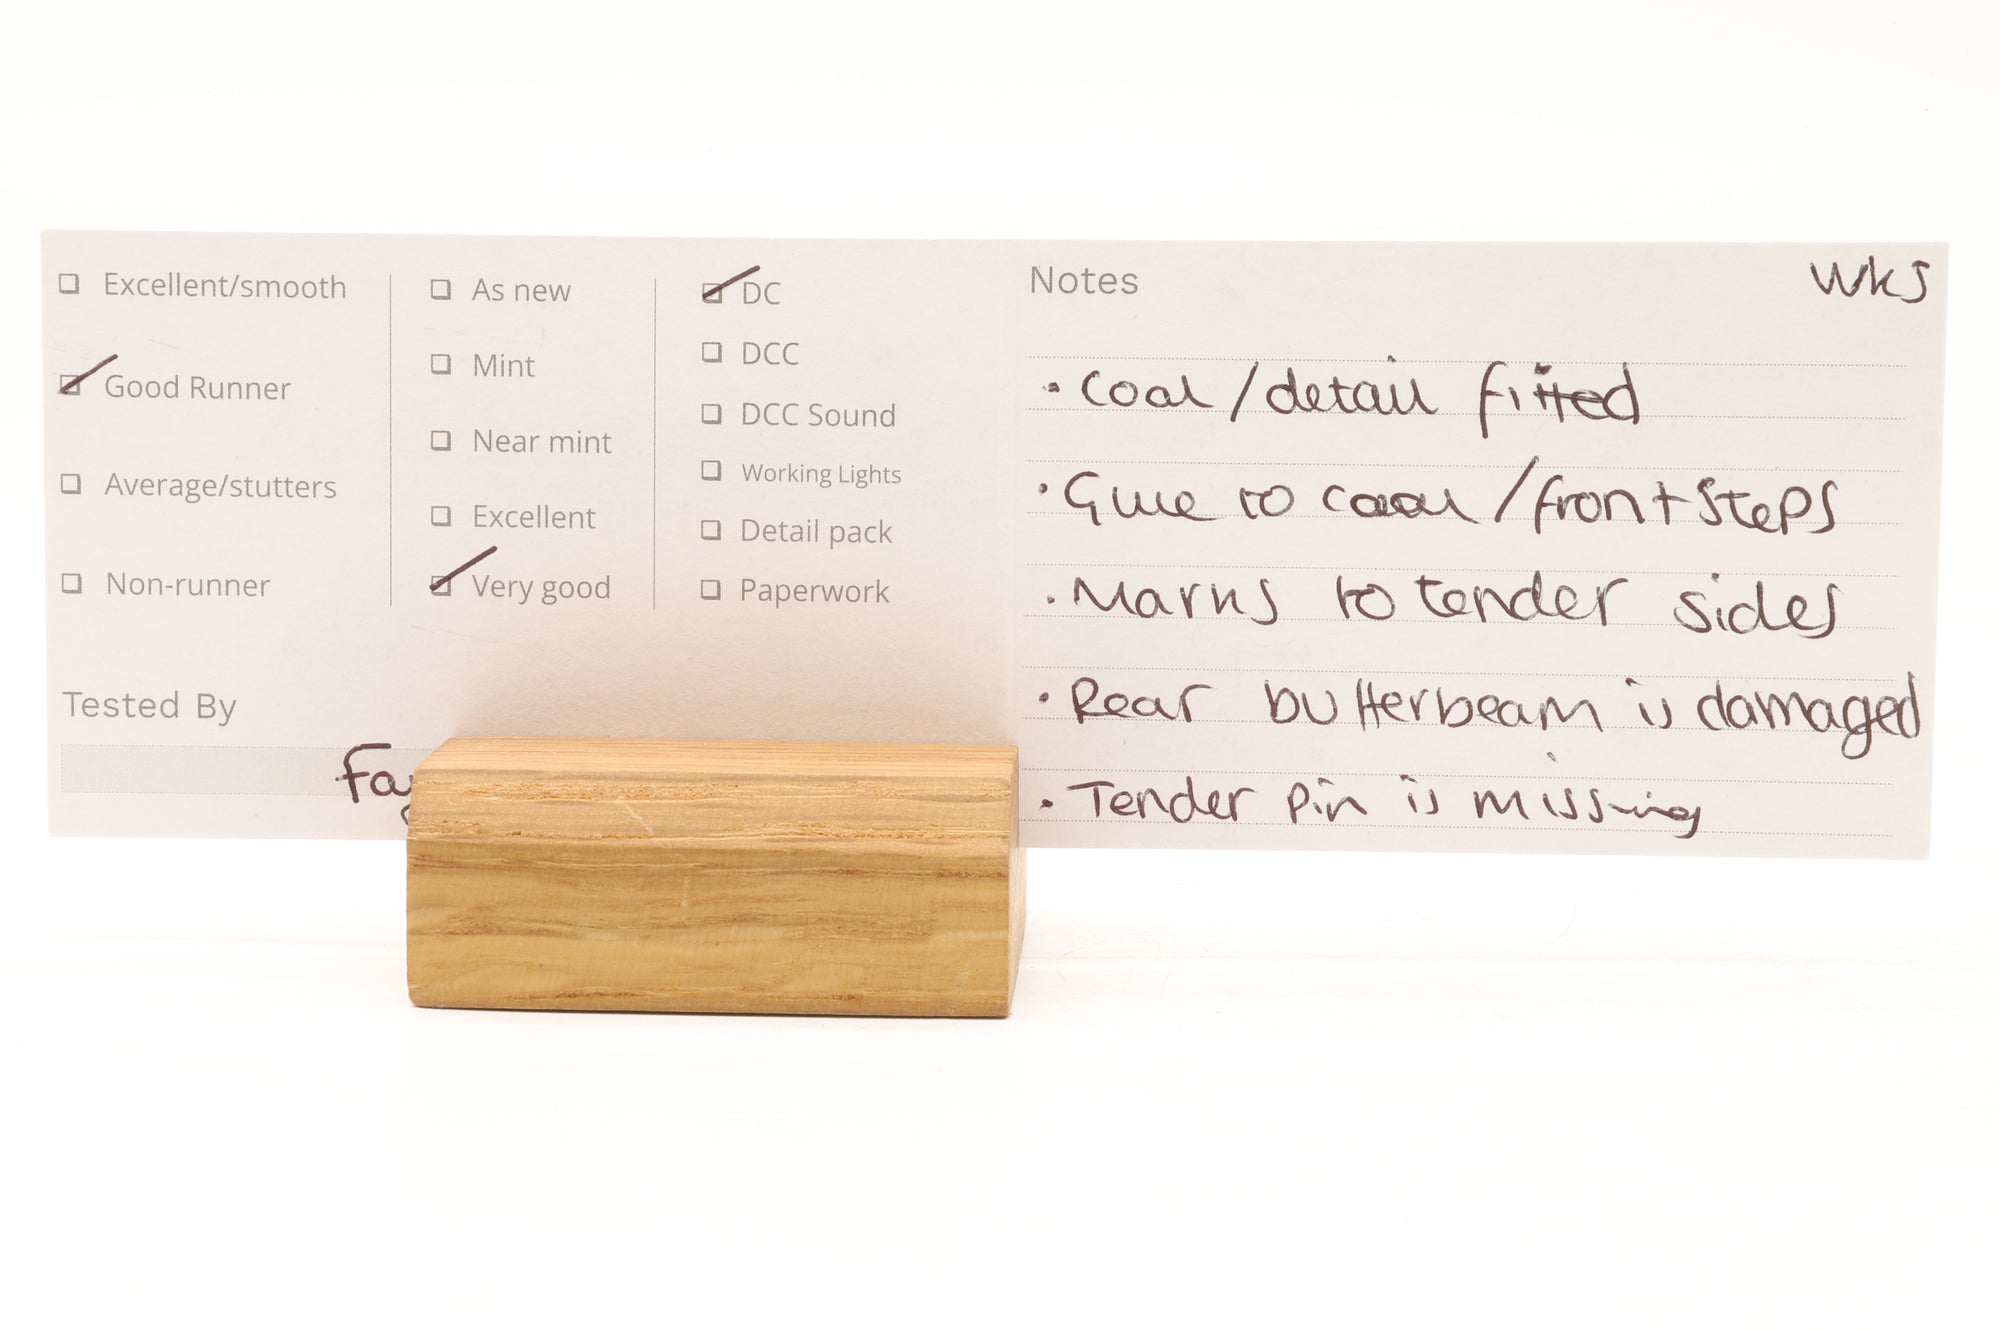 Excellent/smooth
Good Runner
Average/stutters
Non-runner
As new
Mint
Near mint
Excellent
Very good
DC
DCC
DCC Sound
Working Lights
Detail pack
Paperwork
Tested By
Notes
WKS
• Coal/detail fitted
• Glue to coal/front steps
• Marks to tender sides
• Rear bufferbeam is damaged
• Tender pin is missing